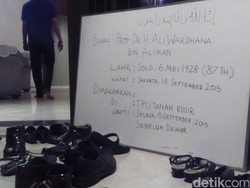 إنا لله وإنا إليه راجعون
Bapak Prof. Dr. H. Ali Wardhana
Bin Aliman
Lahir : Solo, 6 Mei 1928 (87 Th)
Wafat : Jakarta, 14 September 2015
Dimakamkan :
Di : TPU Tanah Kusir
Waktu : Selasa, 15 September 2015
Sebelum Dzuhur
detikcom